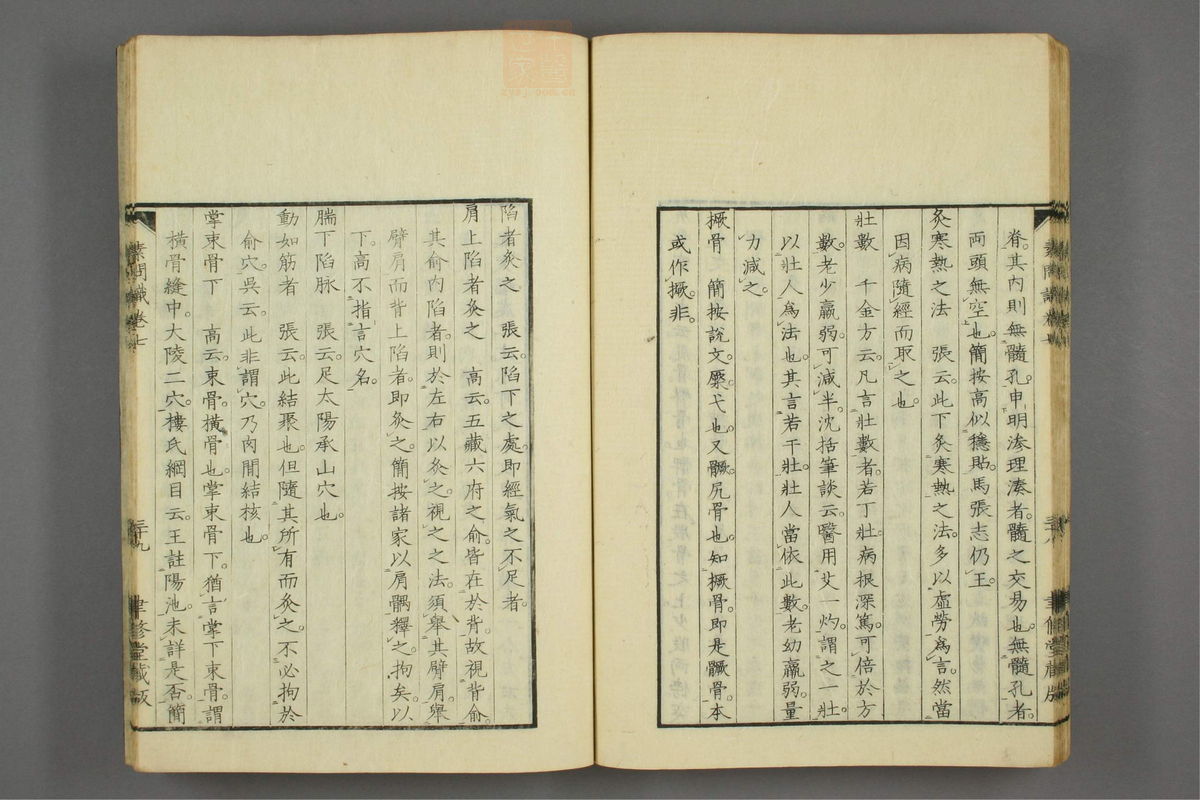 脊其内則無髓孔申明滲理湊者髓之交易也無髓孔者
両頭無空也簡按高似穏貼馬張志仍王
灸寒熱之法　張云此下灸寒熱之法多以虛勞爲言然當
因病隨經而取之也
壯數　千金方云凡言壯數者若丁壯病根深篤可倍於方
數老少羸弱可減半沈括筆談云醫用艾一灼謂之一壯
以壯人爲法也其言若干壯壯人當依此數老幼羸弱量
力減之
橛骨　簡按說文橜弋也又𩪗尻骨也知橛骨即是𩪗骨本
或作撅非
陷者灸之　張云陷下之處即經氣之不足者
肩上陷者灸之　高云五藏六府之俞皆在於背故視背俞
其俞内陷者則於左右以灸之視之之法須舉其臂肩舉
臂肩而背上陷者即灸之簡按諸家以肩髃釋之拘矣以
下高不指言穴名
腨下陷脉　張云足太陽承山穴也
動如筋者　張云此結聚也但隨其所有而灸之不必拘於
俞穴吳云此非謂穴乃肉間結核也
掌束骨下　高云束骨橫骨也掌束骨下猶言掌下束骨謂
橫骨縫中大陵二穴樓氏綱目云王註陽池未詳是否簡
素問識卷七
三十九
聿修堂藏版